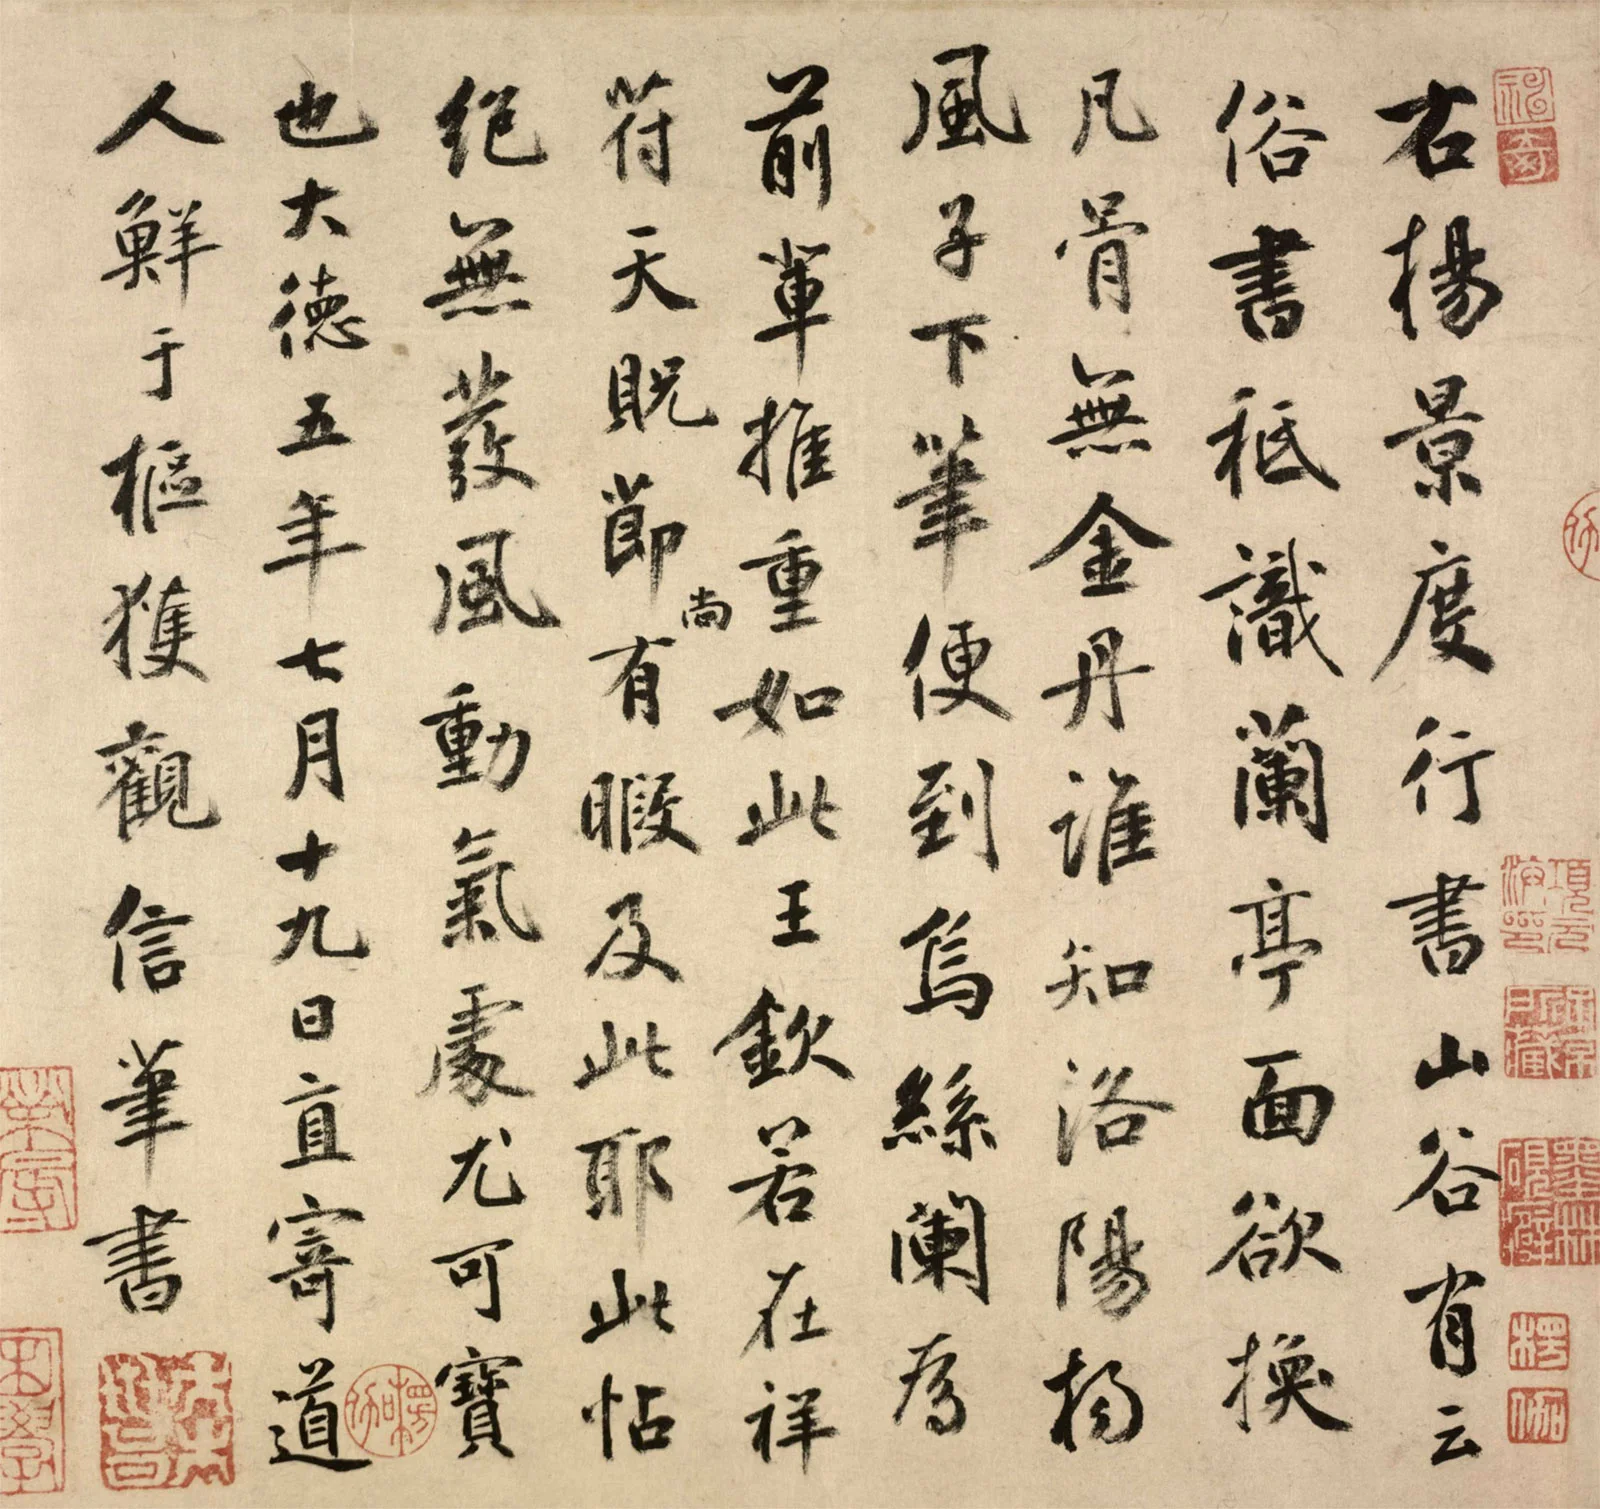 右楊景度行書山谷有云
俗書秪識蘭亭面欲換
凡骨無金丹誰知洛陽楊
風子下筆便到烏絲闌為
前輩推重如此王欽若在祥
符天貺節尚有暇及此耶此帖
絕無蓑風動氣處尤可寶
也大德五年七月十九日直寄道
人鮮于樞獲觀信筆書
項元汴印
墨林硯癖
楞伽